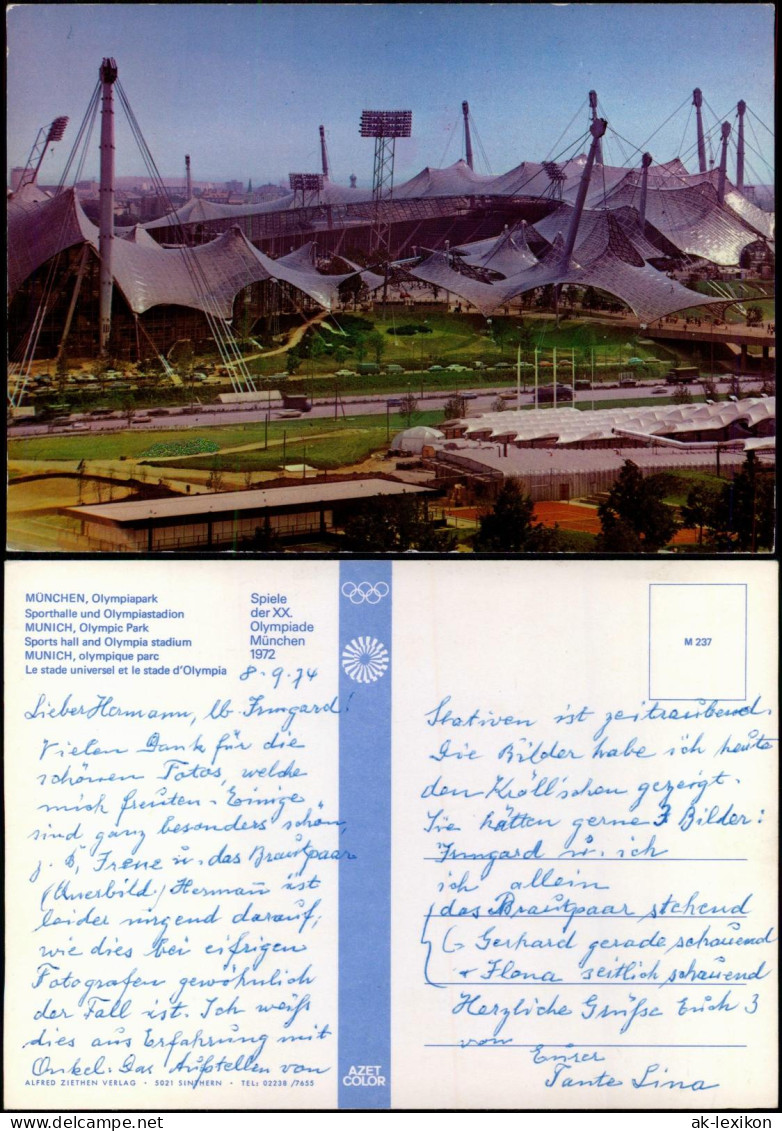 MÜNCHEN, Olympiapark
Sporthalle und Olympiastadion
MUNICH, Olympic Park
Sports hall and Olympia stadium
MUNICH, olympique parc
Le stade universel et le stade d'Olympia
Spiele
der XX.
Olympiade
München
1972
8.9.74
Lieber Hermann, lb. Irmgard!
Vielen Dank für die
schönen Fotos, welche
mich freuten. Einige
sind ganz besonders schön,
z. B. Irene u. das Brautpaar
(Querbild.) Hermann ist
leider nirgend darauf,
wie dies bei eifrigen
Fotografen gewöhnlich
der Fall ist. Ich weiß
dies aus Erfahrung mit
Onkel. Das Aufstellen von
ALFRED ZIETHEN VERLAG · 5021 SINTHERN · TEL: 02238/7655
AZET
COLOR
M 237
Stativen ist zeitraubend.
Die Bilder habe ich heute
den Kröll'schen gezeigt.
Sie hätten gerne 3 Bilder:
Irmgard u. ich
ich allein
das Brautpaar stehend
Gerhard gerade schauend
+ Ilona seitlich schauend
Herzliche Grüße Euch 3
von Eurer
Tante Lina
© ak-lexikon
ak-lexikon.com